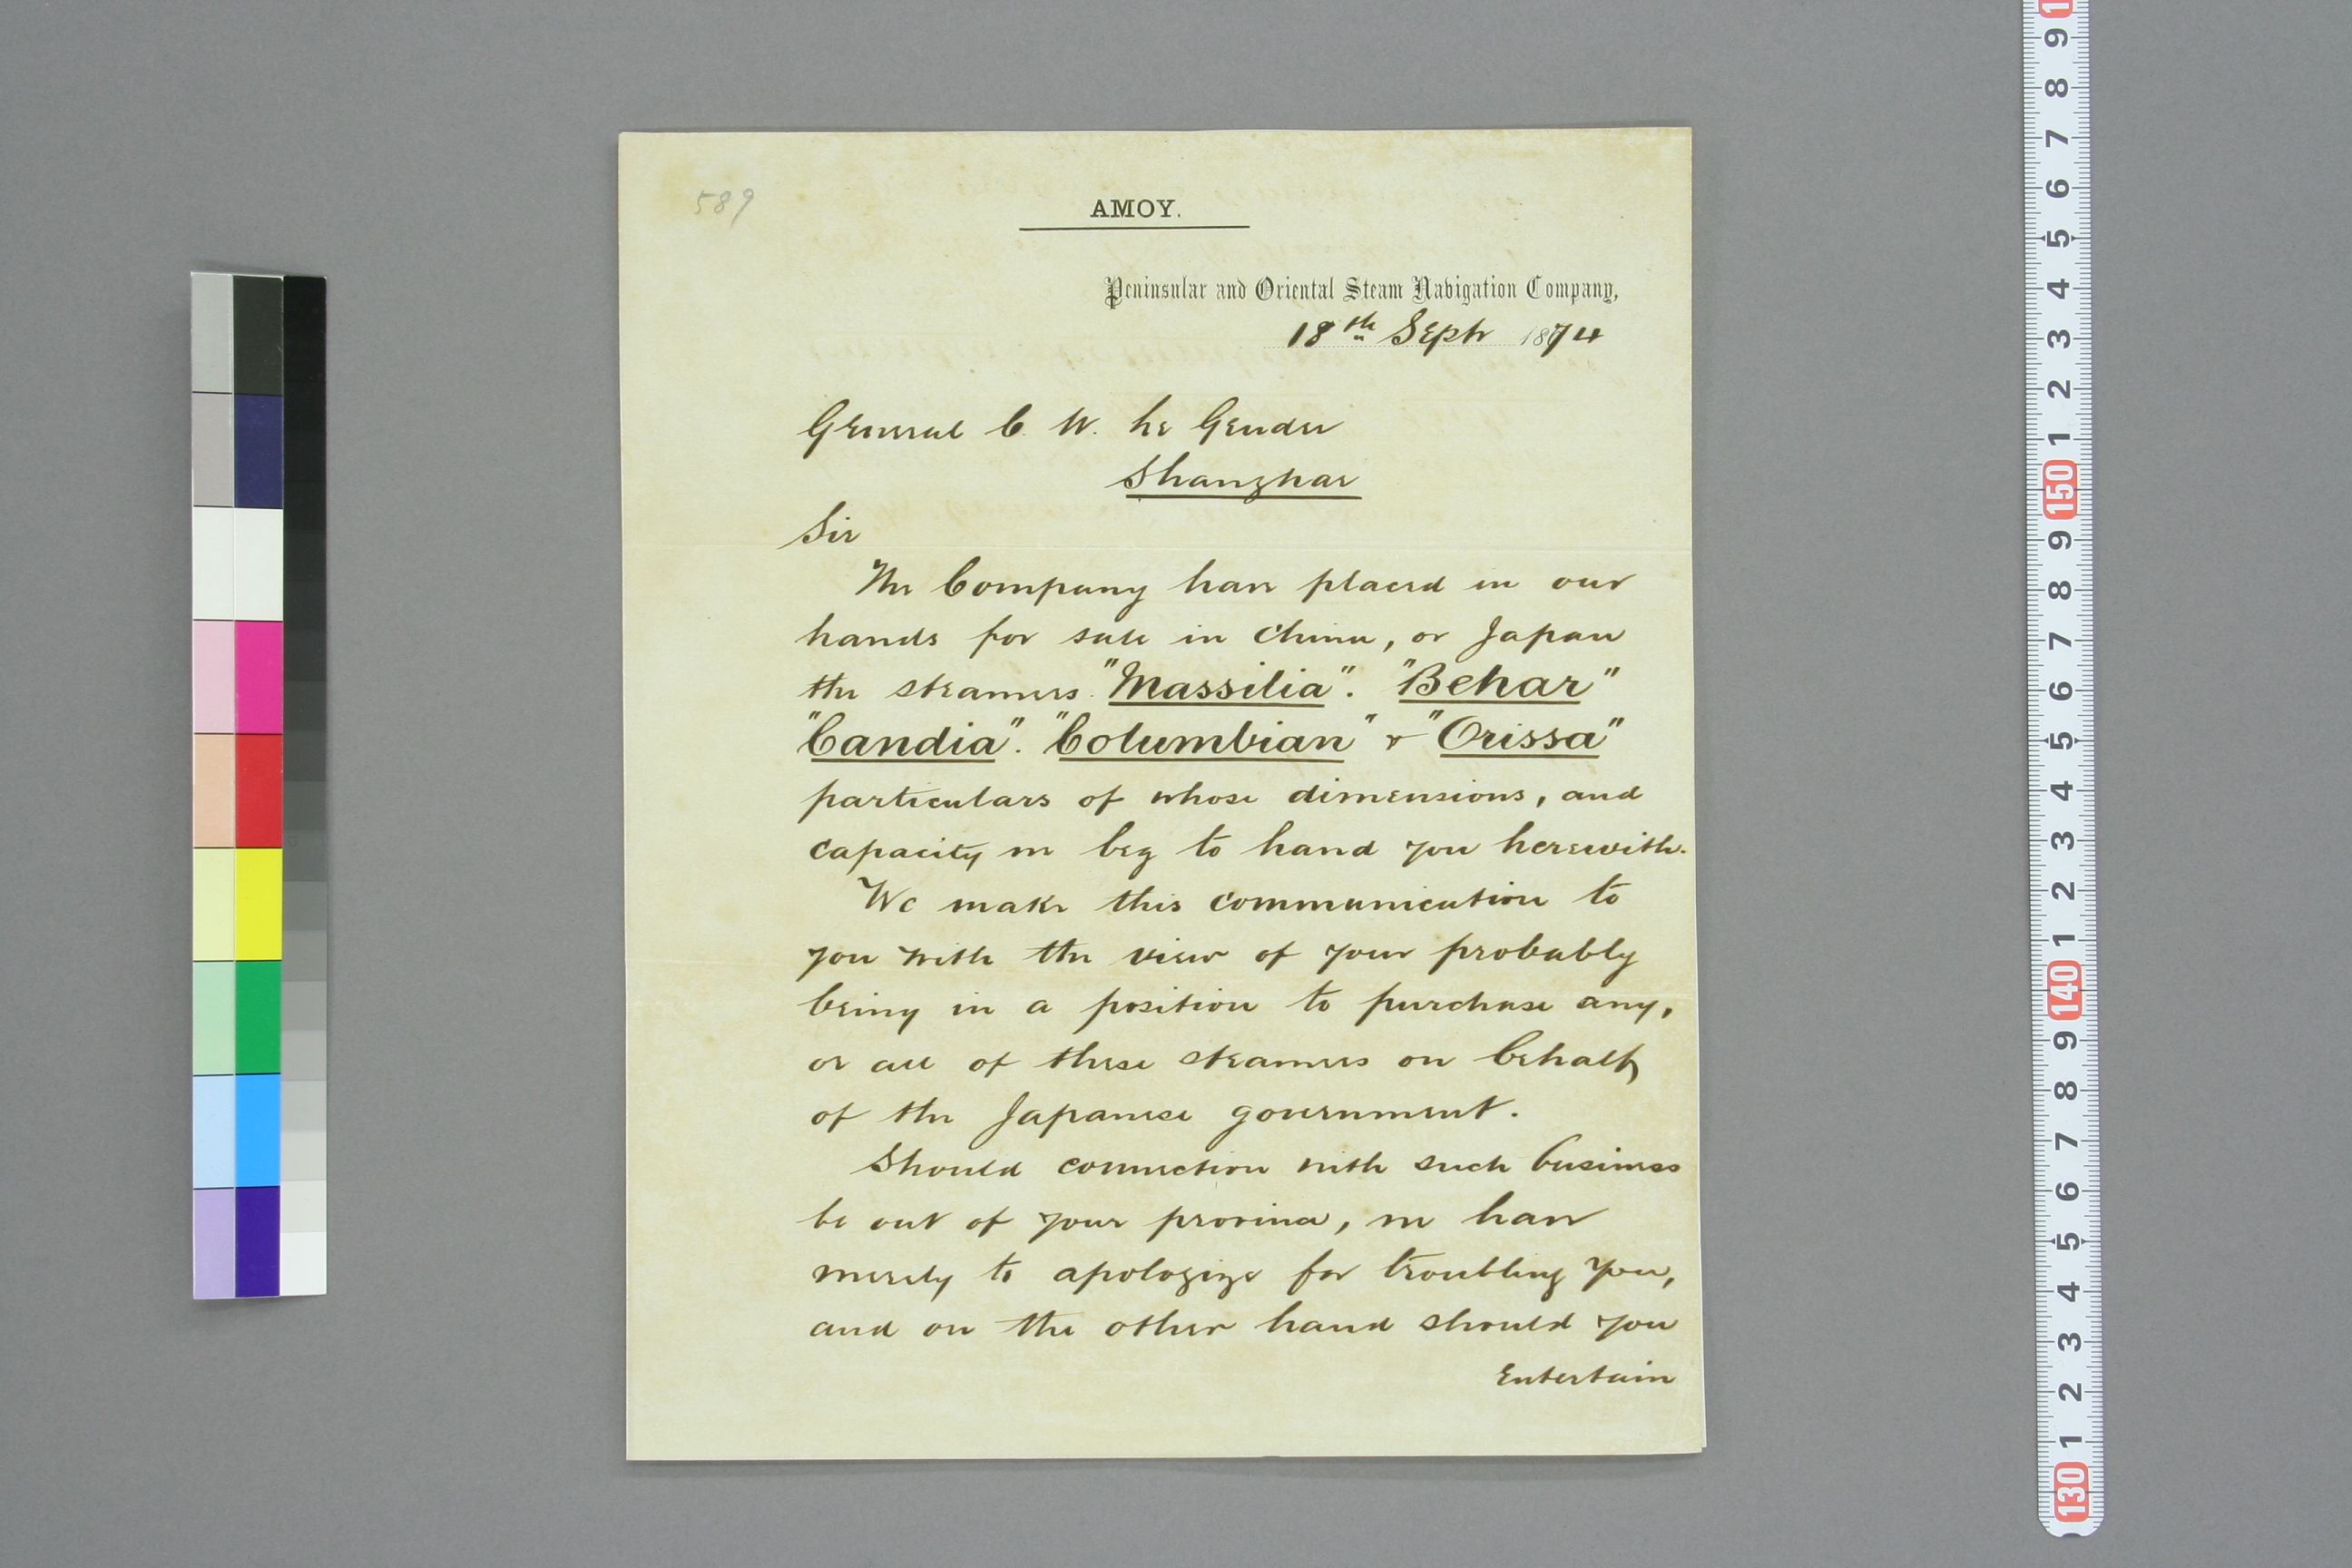 589
AMOY.
Peninsular and Oriental Steam Navigation Company,
18th Sept 1874
General C. W. Le Gendre
Shanghai
Sir
The Company have placed in our
hands for sale in China, or Japan
the steamers "Massilia". "Behar"
"Candia". "Columbian" & "Orissa"
particulars of whose dimensions, and
capacity we beg to hand you herewith.
We make this communication to
you with the view of your probably
being in a position to purchase any,
or all of these steamers on behalf
of the Japanese government.
Should connection with such business
be out of your province, we have
merely to apologize for troubling you,
and on the other hand should you
entertain
9
8
7
6
5
4
3
2
1
150
9
8
7
6
5
4
3
2
1
140
9
8
7
6
5
4
3
2
1
130